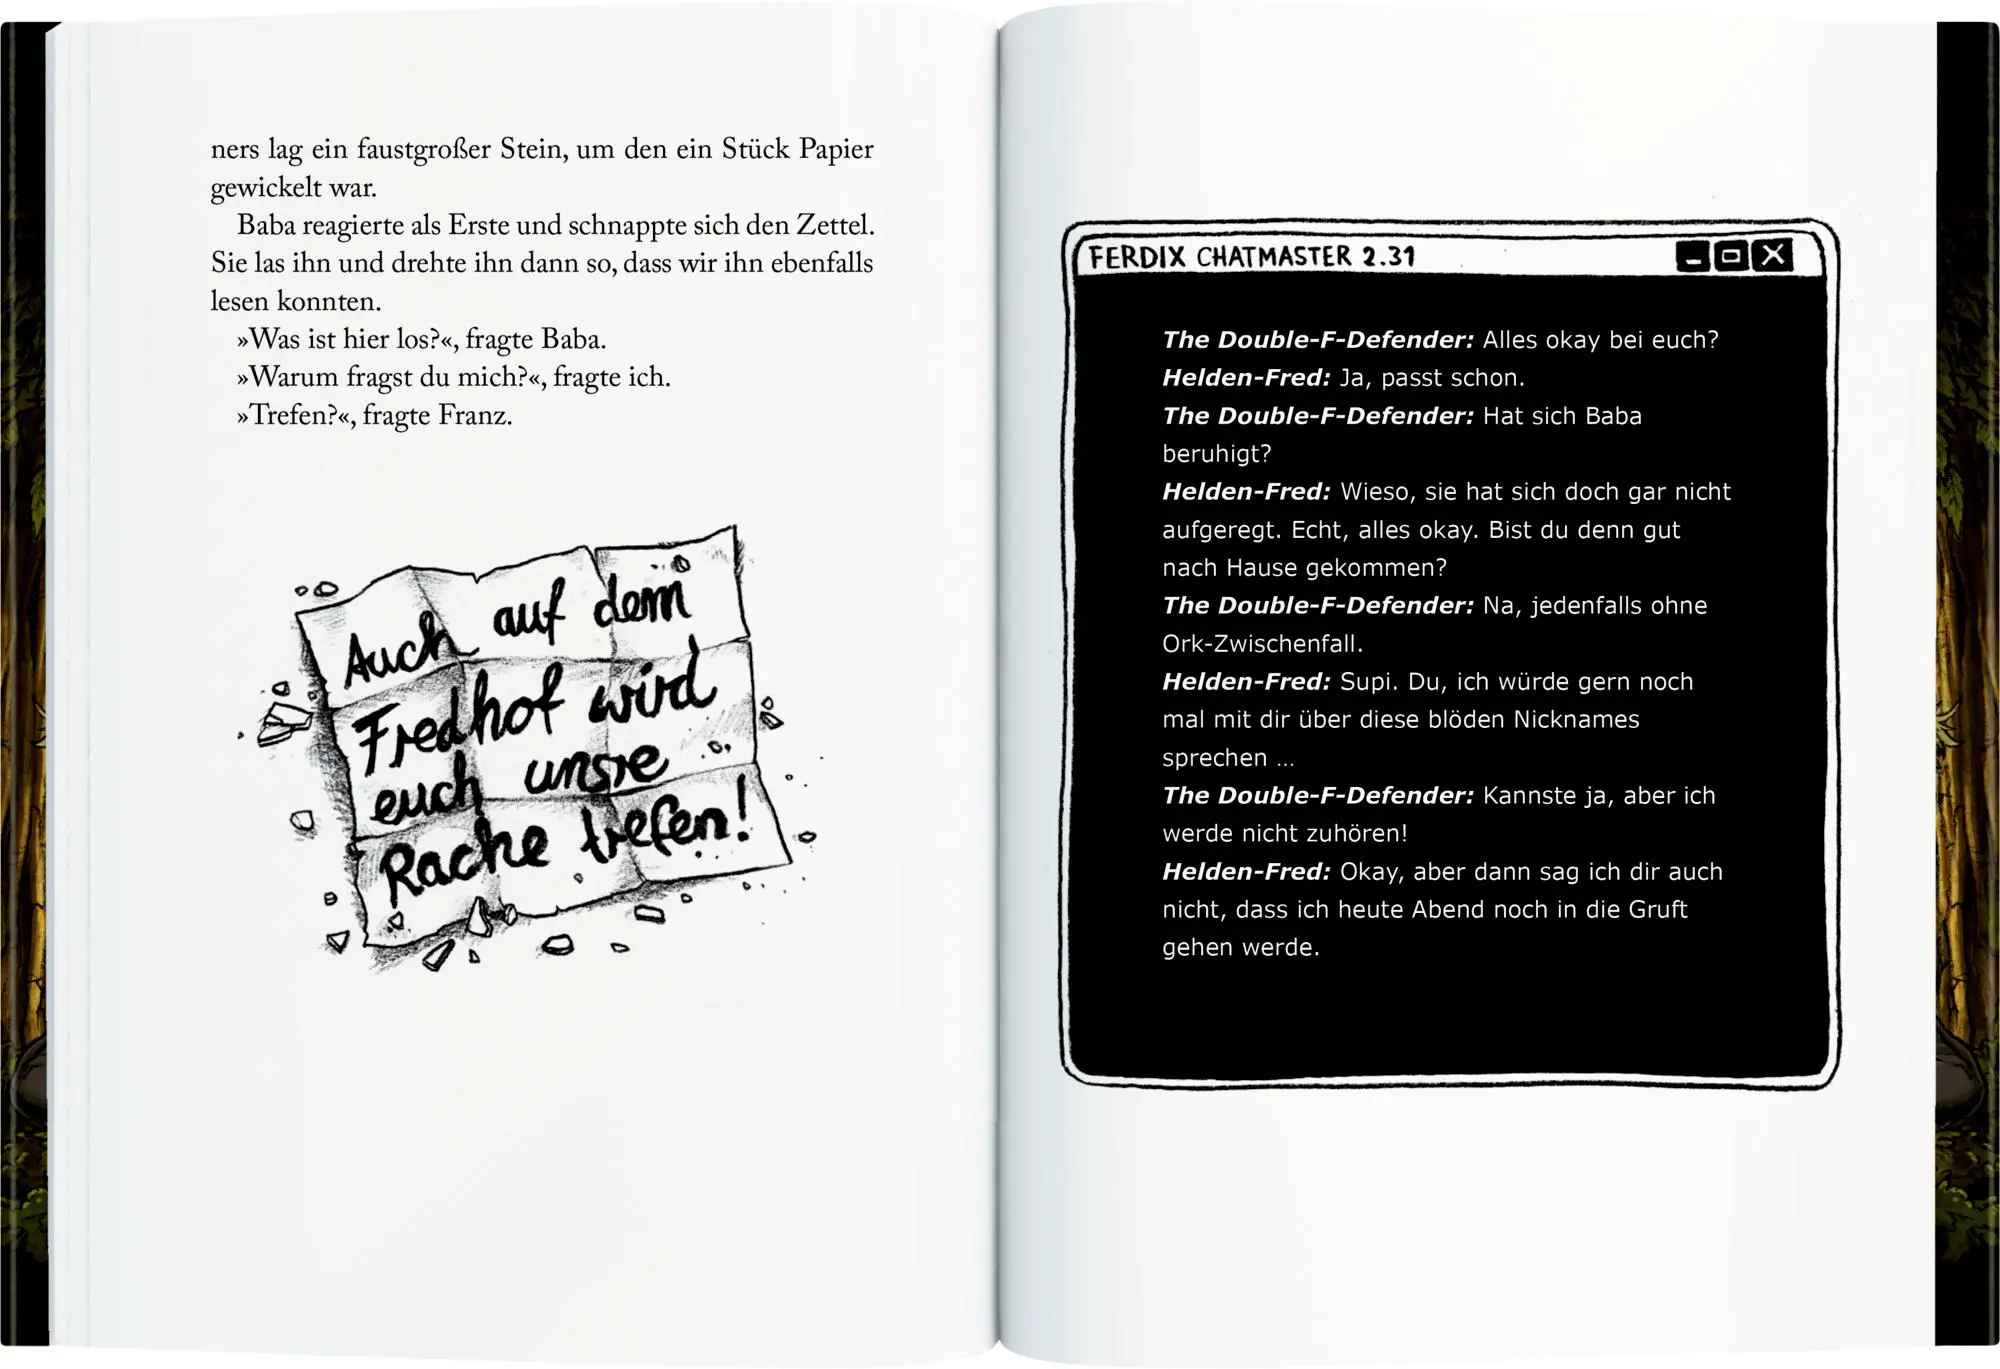 ners lag ein faustgroßer Stein, um den ein Stück Papier
gewickelt war.
Baba reagierte als Erste und schnappte sich den Zettel.
Sie las ihn und drehte ihn dann so, dass wir ihn ebenfalls
lesen konnten.
»Was ist hier los?«, fragte Baba.
»Warum fragst du mich?«, fragte ich.
»Trefen?«, fragte Franz.
Auch auf dem
Fredhof wird
euch unsre
Rache trefen!
FERDIX CHATMASTER 2.31
The Double-F-Defender: Alles okay bei euch?
Helden-Fred: Ja, passt schon.
The Double-F-Defender: Hat sich Baba
beruhigt?
Helden-Fred: Wieso, sie hat sich doch gar nicht
aufgeregt. Echt, alles okay. Bist du denn gut
nach Hause gekommen?
The Double-F-Defender: Na, jedenfalls ohne
Ork-Zwischenfall.
Helden-Fred: Supi. Du, ich würde gern noch
mal mit dir über diese blöden Nicknames
sprechen …
The Double-F-Defender: Kannste ja, aber ich
werde nicht zuhören!
Helden-Fred: Okay, aber dann sag ich dir auch
nicht, dass ich heute Abend noch in die Gruft
gehen werde.